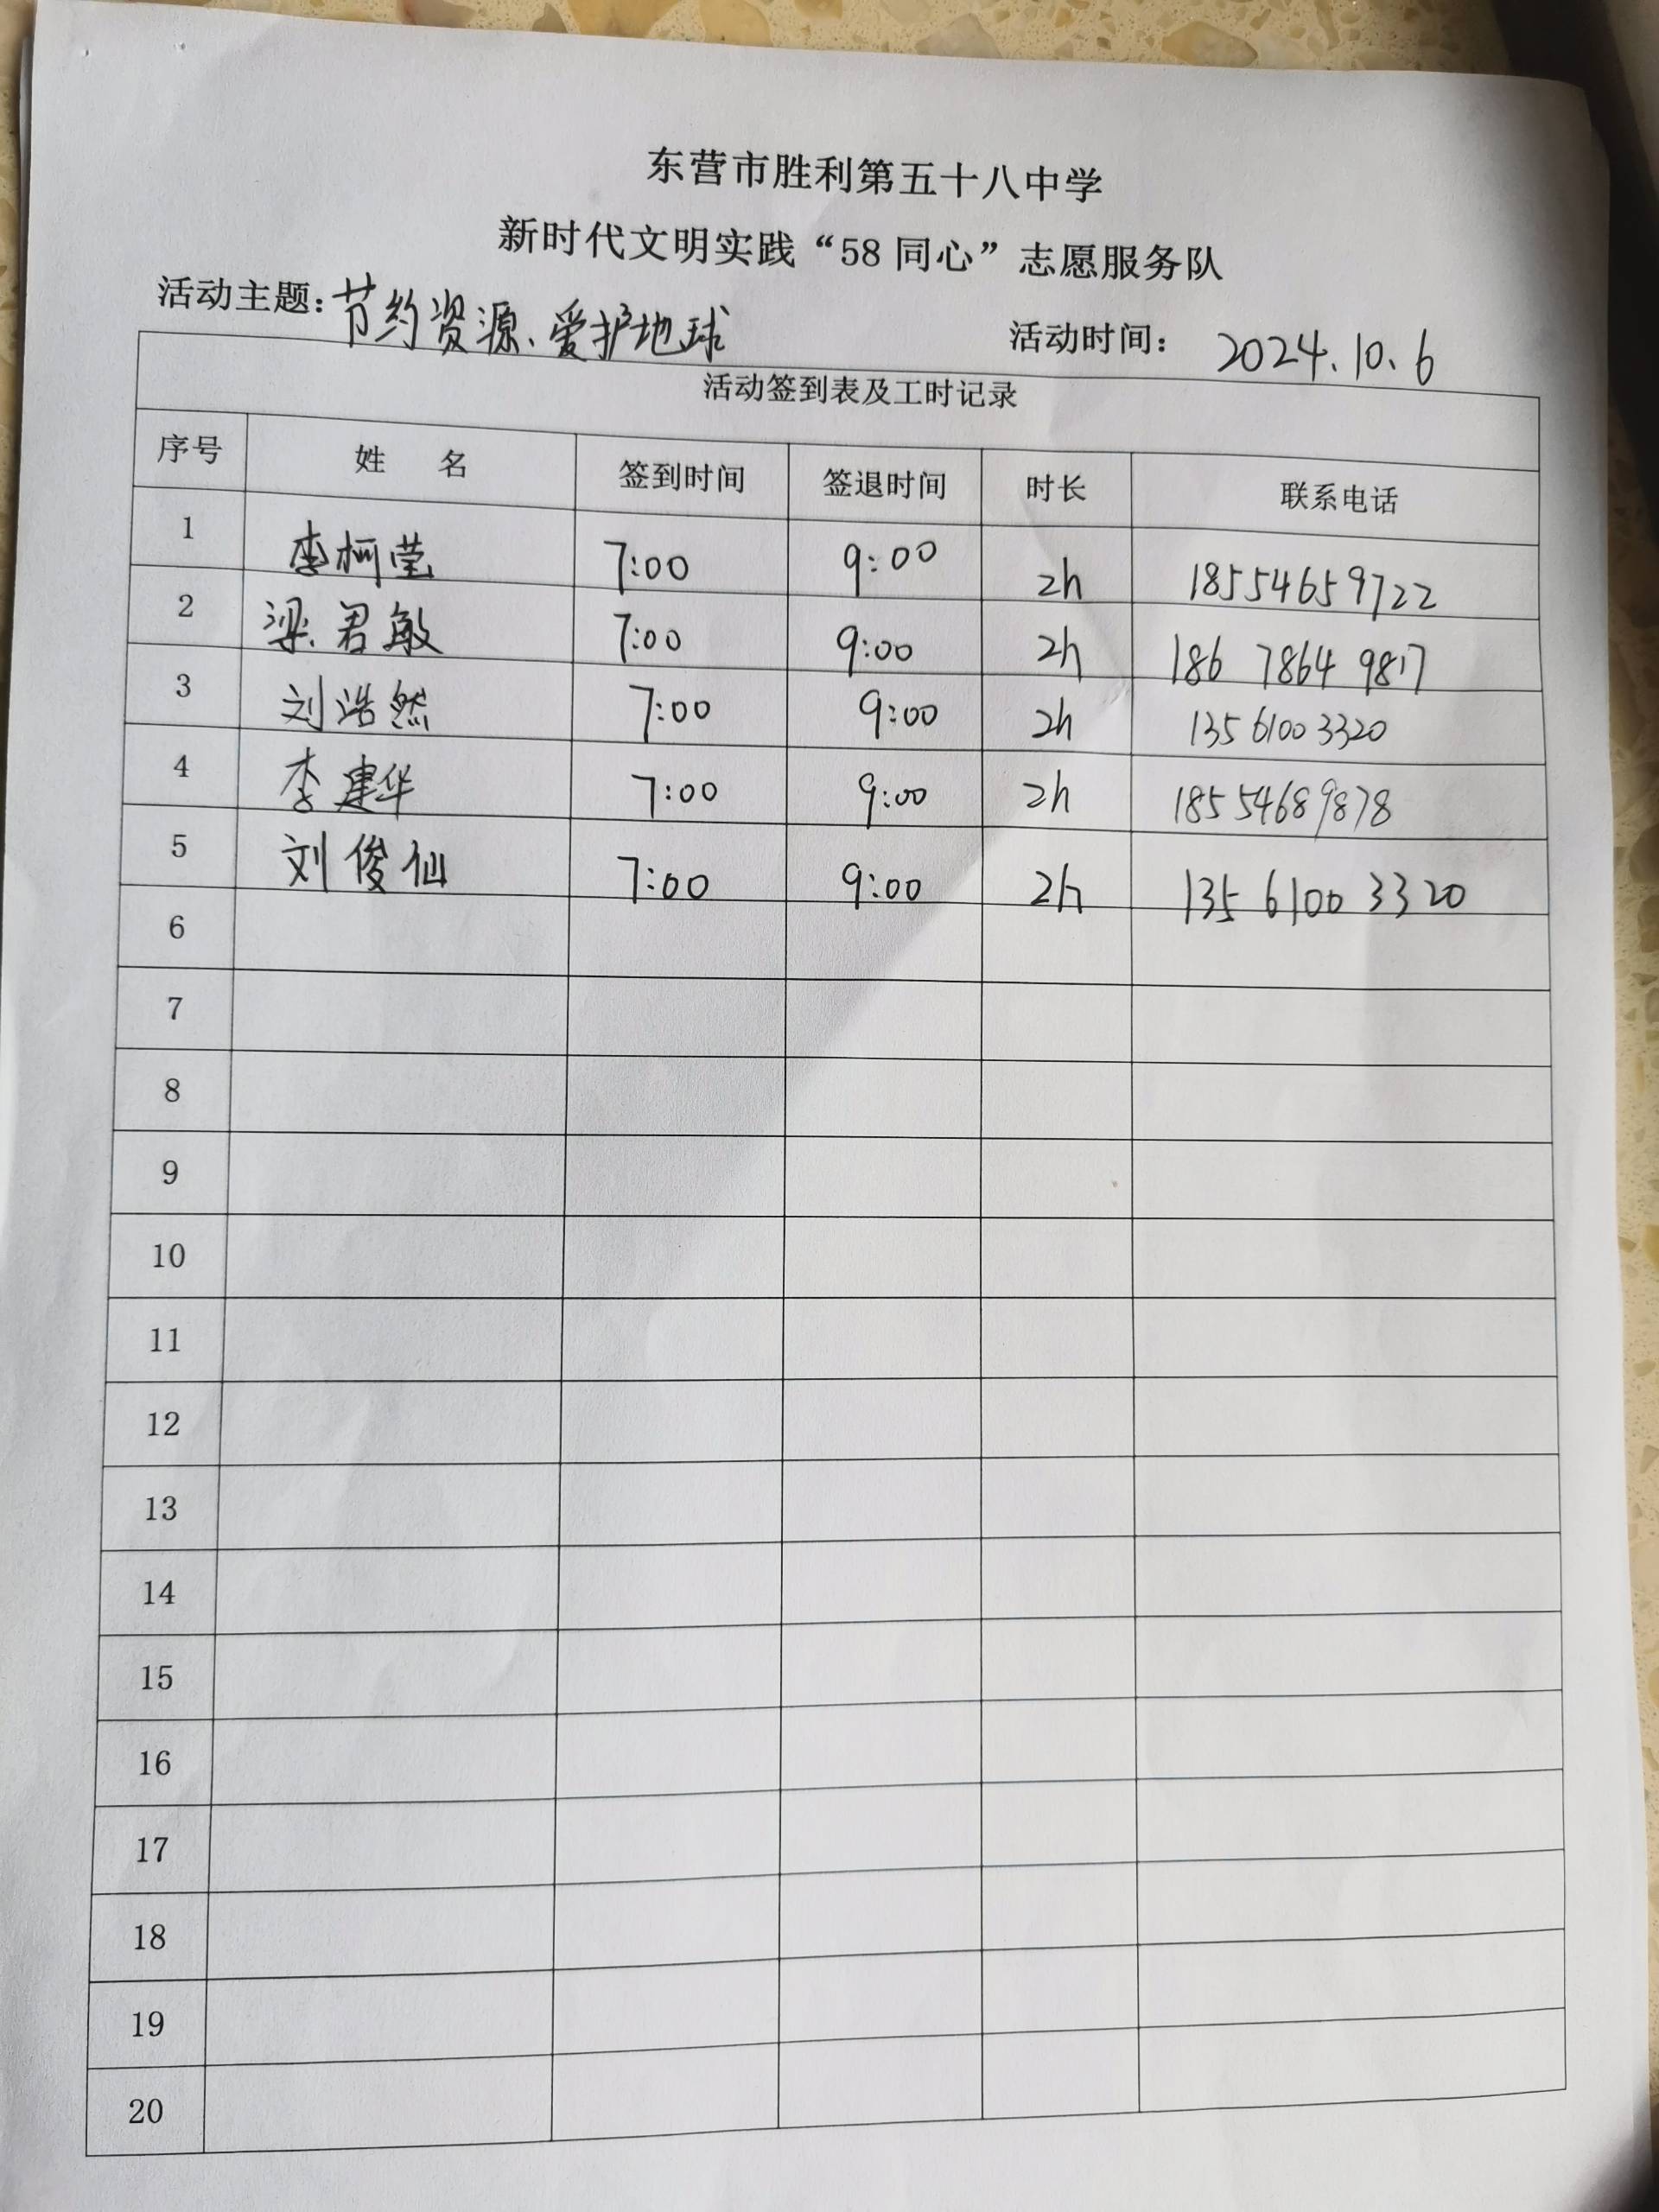 东营市胜利第五十八中学
新时代文明实践“58同心”志愿服务队
活动主题:节约资源、爱护地球 活动时间: 2024.10.6
活动签到表及工时记录
序号 姓 名 签到时间 签退时间 时长 联系电话
1 李柯莹 7:00 9:00 2h 18554659722
2 梁君敏 7:00 9:00 2h 186 7864 9817
3 刘浩然 7:00 9:00 2h 135 6100 3320
4 李建华 7:00 9:00 2h 18554689878
5 刘俊仙 7:00 9:00 2h 135 6100 3320
6
7
8
9
10
11
12
13
14
15
16
17
18
19
20